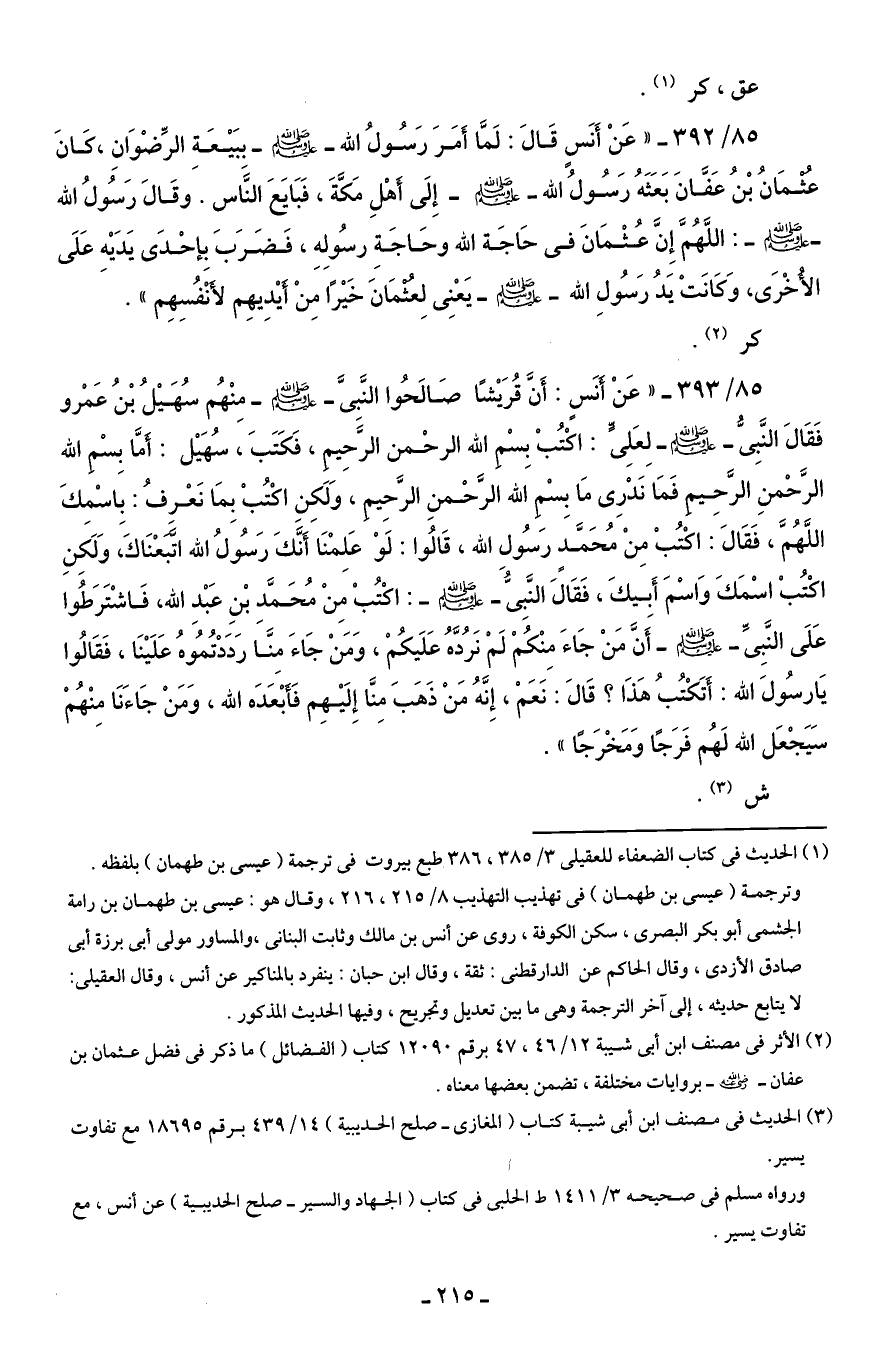 عق ، كر (١) .
٨٥/ ٣٩٢ ـ « عَنْ أَنَسٍ قَالَ : لَمَّا أَمَرَ رَسُولُ الله ـ ﷺ ـ بِبَيْعَةِ الرِّضْوَانِ ،كَانَ
عُثْمَانُ بْنُ عَفَّانَ بَعَثَهُ رَسُولُ الله ـ ﷺ ـ إِلَى أَهْلِ مَكَّةَ ، فَبَايَعَ النَّاس . وقَالَ رَسُولُ الله
ـ ﷺ ـ : اللَّهُمَّ إِنَّ عُثْمَانَ فى حَاجَة الله وحَاجَةِ رسُولِهِ ، فَضَرَبَ بِإحْدَى يَدَيْهِ عَلَى
الأُخْرَى، وَكَانَتْ يَدُ رَسُولِ الله ـ ﷺ ـ يَعْنِى لِعُثْمَانَ خَيْرًا مِنْ أَيْدِيهِم لأَنْفُسِهِم » .
كر (٢) .
٨٥/ ٣٩٣ ـ « عَنْ أَنَسٍ : أَنَّ قُرَيْشًا صَالَحُوا النَّبِىَّ ـ ﷺ ـ مِنْهُم سُهَيْلُ بْنُ عَمْرو
فَقَالَ النَّبِىُّ ـ ﷺ ـ لِعَلِىٍّ : اكْتُبْ بِسْمِ الله الرحْمنِ الرَّحِيمِ ، فَكَتَبَ ، سُهَيْل : أَمَّا بِسْمِ الله
الرَّحْمنِ الرَّحِيمِ فَمَا نَدْرِى مَا بِسْمِ الله الرَّحْمنِ الرَّحِيمِ ، ولَكن اكْتُبْ بِمَا نَعْرِفُ : بِاسْمِكَ
اللَّهُمَّ ، فَقَالَ : اكْتُبْ مِنْ مُحَمَّدٍ رَسُولِ الله ، قَالُوا : لَوْ عَلِمْنَا أَنَّكَ رَسُولُ الله اتَّبَعْنَاكَ، ولَكِنِ
اكْتُبْ اسْمَكَ وَاسْمَ أَبِيكَ ، فَقَالَ النَّبِىُّ ـ ﷺ ـ : اكْتُبْ مِنْ مُحَمَّدِ بْنِ عَبْدِ الله، فَاشْتَرَطُوا
عَلَى النَّبِىِّ ـ ﷺ ـ أَنَّ مَنْ جَاءَ مِنْكُمْ لَمْ نَرُدَّهُ عَلَيكُمْ ، ومَنْ جَاءَ مِنَّا رَدَدْتُمُوهُ عَلَيْنَا ، فَقَالُوا
يَارسُولَ الله : أَتَكْتُبُ هَذَا ؟ قَالَ : نَعَمْ ، إِنَّهُ مَنْ ذَهَبَ مِنَّا إِلَيْهِم فَأَبْعَدَه الله ، وَمَنْ جَاءَنَا مِنْهُمْ
سَيَجْعَل الله لَهُم فَرَجًا وَمَخْرَجًا » .
ش (٣) .
(١) الحديث فى كتاب الضعفاء للعقيلى ٣/ ٣٨٥ ، ٣٨٦ طبع بيروت فى ترجمة ( عيسى بن طهمان ) بلفظه .
وترجمة ( عيسى بن طهمان ) فى تهذيب التهذيب ٨/ ٢١٥ ، ٢١٦ ، وقال هو : عيسى بن طهمان بن رامة
الجشمى أبو بكر البصرى ، سكن الكوفة ، روى عن أنس بن مالك وثابت البنانى ،والمساور مولى أبى برزة أبى
صادق الأزدى ، وقال الحاكم عن الدارقطنى : ثقة ، وقال ابن حبان : ينفرد بالمناكير عن أنس ، وقال العقيلى:
لا يتابع حديثه ، إلى آخر الترجمة وهى ما بين تعديل وتجريح ، وفيها الحديث المذكور .
(٢) الأثر فى مصنف ابن أبى شيبة ١٢/ ٤٦ ، ٤٧ برقم ١٢٠٩٠ كتاب ( الفضائل ) ما ذكر فى فضل عثمان بن
عفان ـ رضي الله عنه ـ بروايات مختلفة ، تضمن بعضها معناه .
(٣) الحديث فى مصنف ابن أبى شيبة كتاب ( المغازى ـ صلح الحديبية ) ١٤/ ٤٣٩ برقم ١٨٦٩٥ مع تفاوت
يسير.
ورواه مسلم فى صحيحه ٣/ ١٤١١ ط الحلبى فى كتاب ( الجهاد والسير ـ صلح الحديبية ) عن أنس ، مع
تفاوت يسير .
ـ ٢١٥ ـ